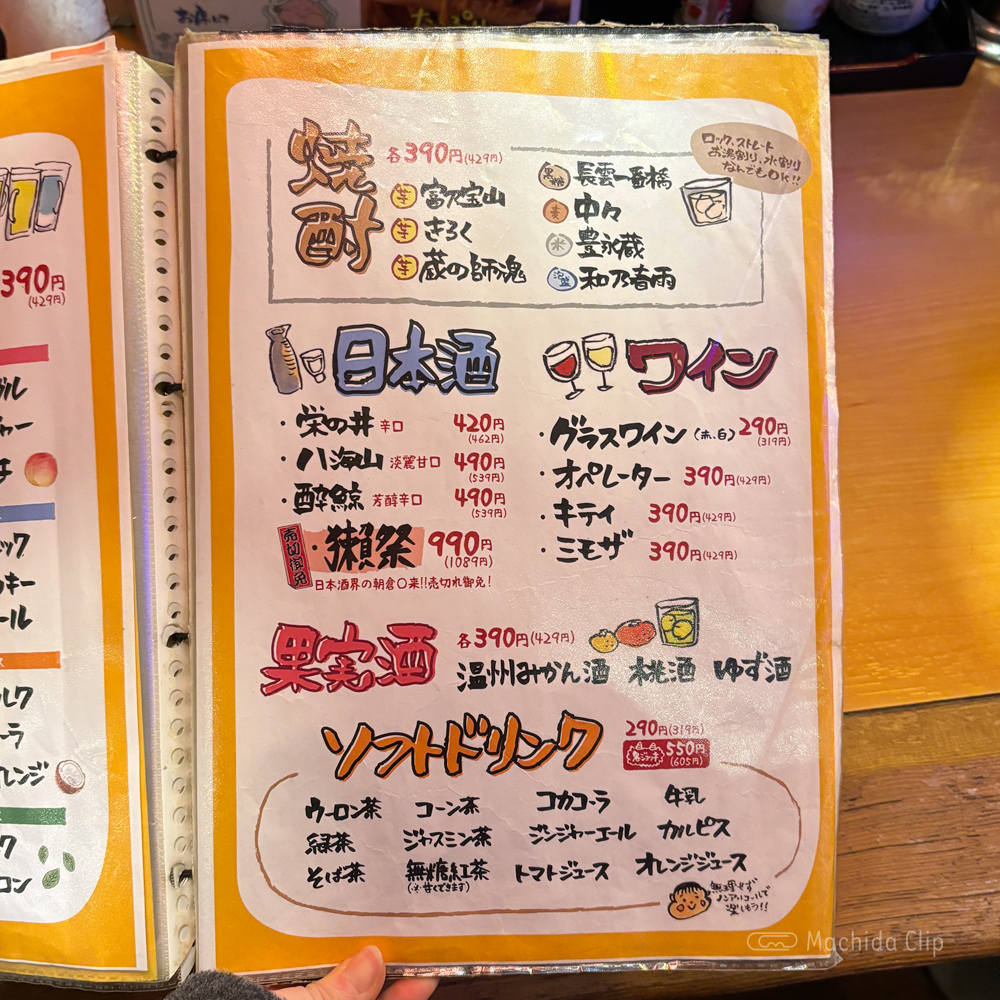 お席に
たっぷり
390円
(429円)
焼酎
各390円(429円)
芋 富乃宝山
芋 きろく
芋 蔵の師魂
黒糖 長雲一番橋
麦 中々
米 豊永蔵
泡盛 和乃春雨
ロック、ストレート
お湯割り、水割り
なんでもOK!!
日本酒
・栄の井 辛口 420円
(462円)
・八海山 淡麗甘口 490円
(539円)
・酔鯨 芳醇辛口 490円
(539円)
売切御免
・獺祭 990円
(1089円)
日本酒界の朝倉〇来!!売切れ御免!
ワイン
・グラスワイン (赤、白) 290円
(319円)
・オペレーター 390円(429円)
・キティ 390円(429円)
・ミモザ 390円(429円)
果実酒
各390円(429円)
温州みかん酒 桃酒 ゆず酒
ソフトドリンク
290円(319円)
鬼ジョッキ 550円
(605円)
ウーロン茶 コーン茶 コカコーラ 牛乳
緑茶 ジャスミン茶 ジンジャーエール カルピス
そば茶 無糖紅茶 トマトジュース オレンジジュース
(※甘くできます)
無理せず
ノンアルコールで
楽しもう!!
Machida Clip